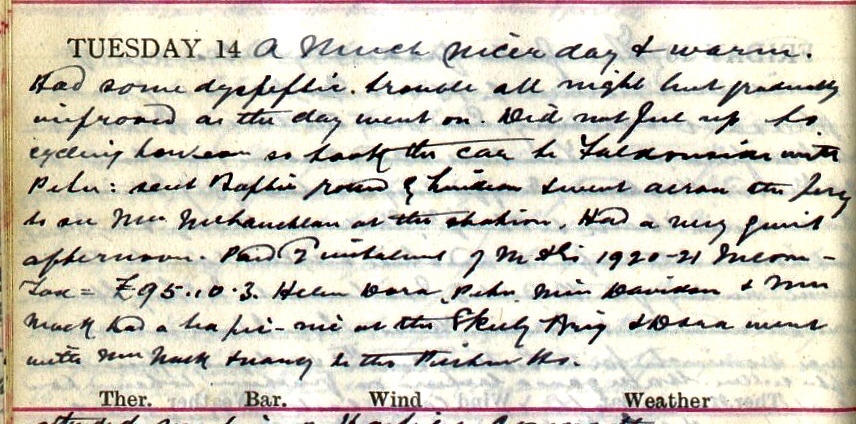 TUESDAY 14 A much nicer day & warm.
Had some dyspeptic trouble all night but gradually
improved as the day went on. Did not feel up to
cycling however so took the car to with
Peter: sent Baptie round & went across the ferry
to see Mrs McLauchlan at the station. Had a very quiet
afternoon. Paid 2 instalment of 1920-21 Income-
Tax = £95.10.3. Helen Dora, Peter, Miss Davidson & Mrs
Mack had a tea pic-nic at the & Dora went
with Mrs Mack & Nancy to the Ho.
Ther. Bar. Wind Weather